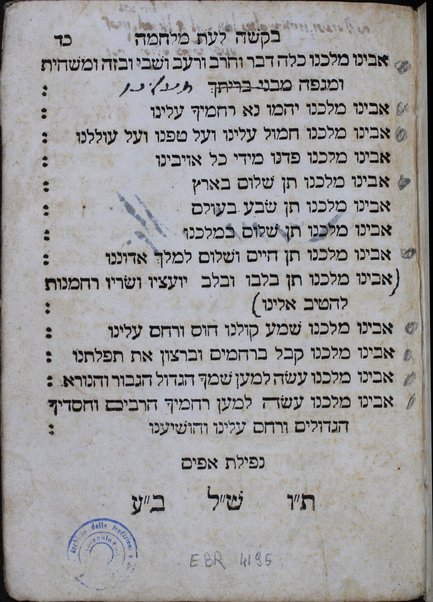 בקשה לעת מלחמה
כד
אבינו מלכנו כלה דבר וחרב ורעב ושבי ובזה ומשחית
ומגפה מבני בריתך
אבינו מלכנו יהמו נא רחמיך עלינו
אבינו מלכנו חמול עלינו ועל טפנו ועל עוללנו
אבינו מלכנו פדנו מידי כל אויבינו
אבינו מלכנו תן שלום בארץ
אבינו מלכנו תן שבע בעולם
אבינו מלכנו תן שלום במלכנו
אבינו מלכנו תן חיים ושלום למלך אדוננו
(אבינו מלכנו תן בלבו ובלב יועציו ושריו רחמנות
להטיב אלינו)
אבינו מלכנו שמע קולנו חוס ורחם עלינו
אבינו מלכנו קבל ברחמים וברצון את תפלתנו
אבינו מלכנו עשה למען שמך הגדול הגבור והנורא
אבינו מלכנו עשה למען רחמיך הרבים וחסדיך
הגדולים ורחם עלינו והושיענו
נפילת אפים
ת״ו ש״ל ב״ע
EBR 4195